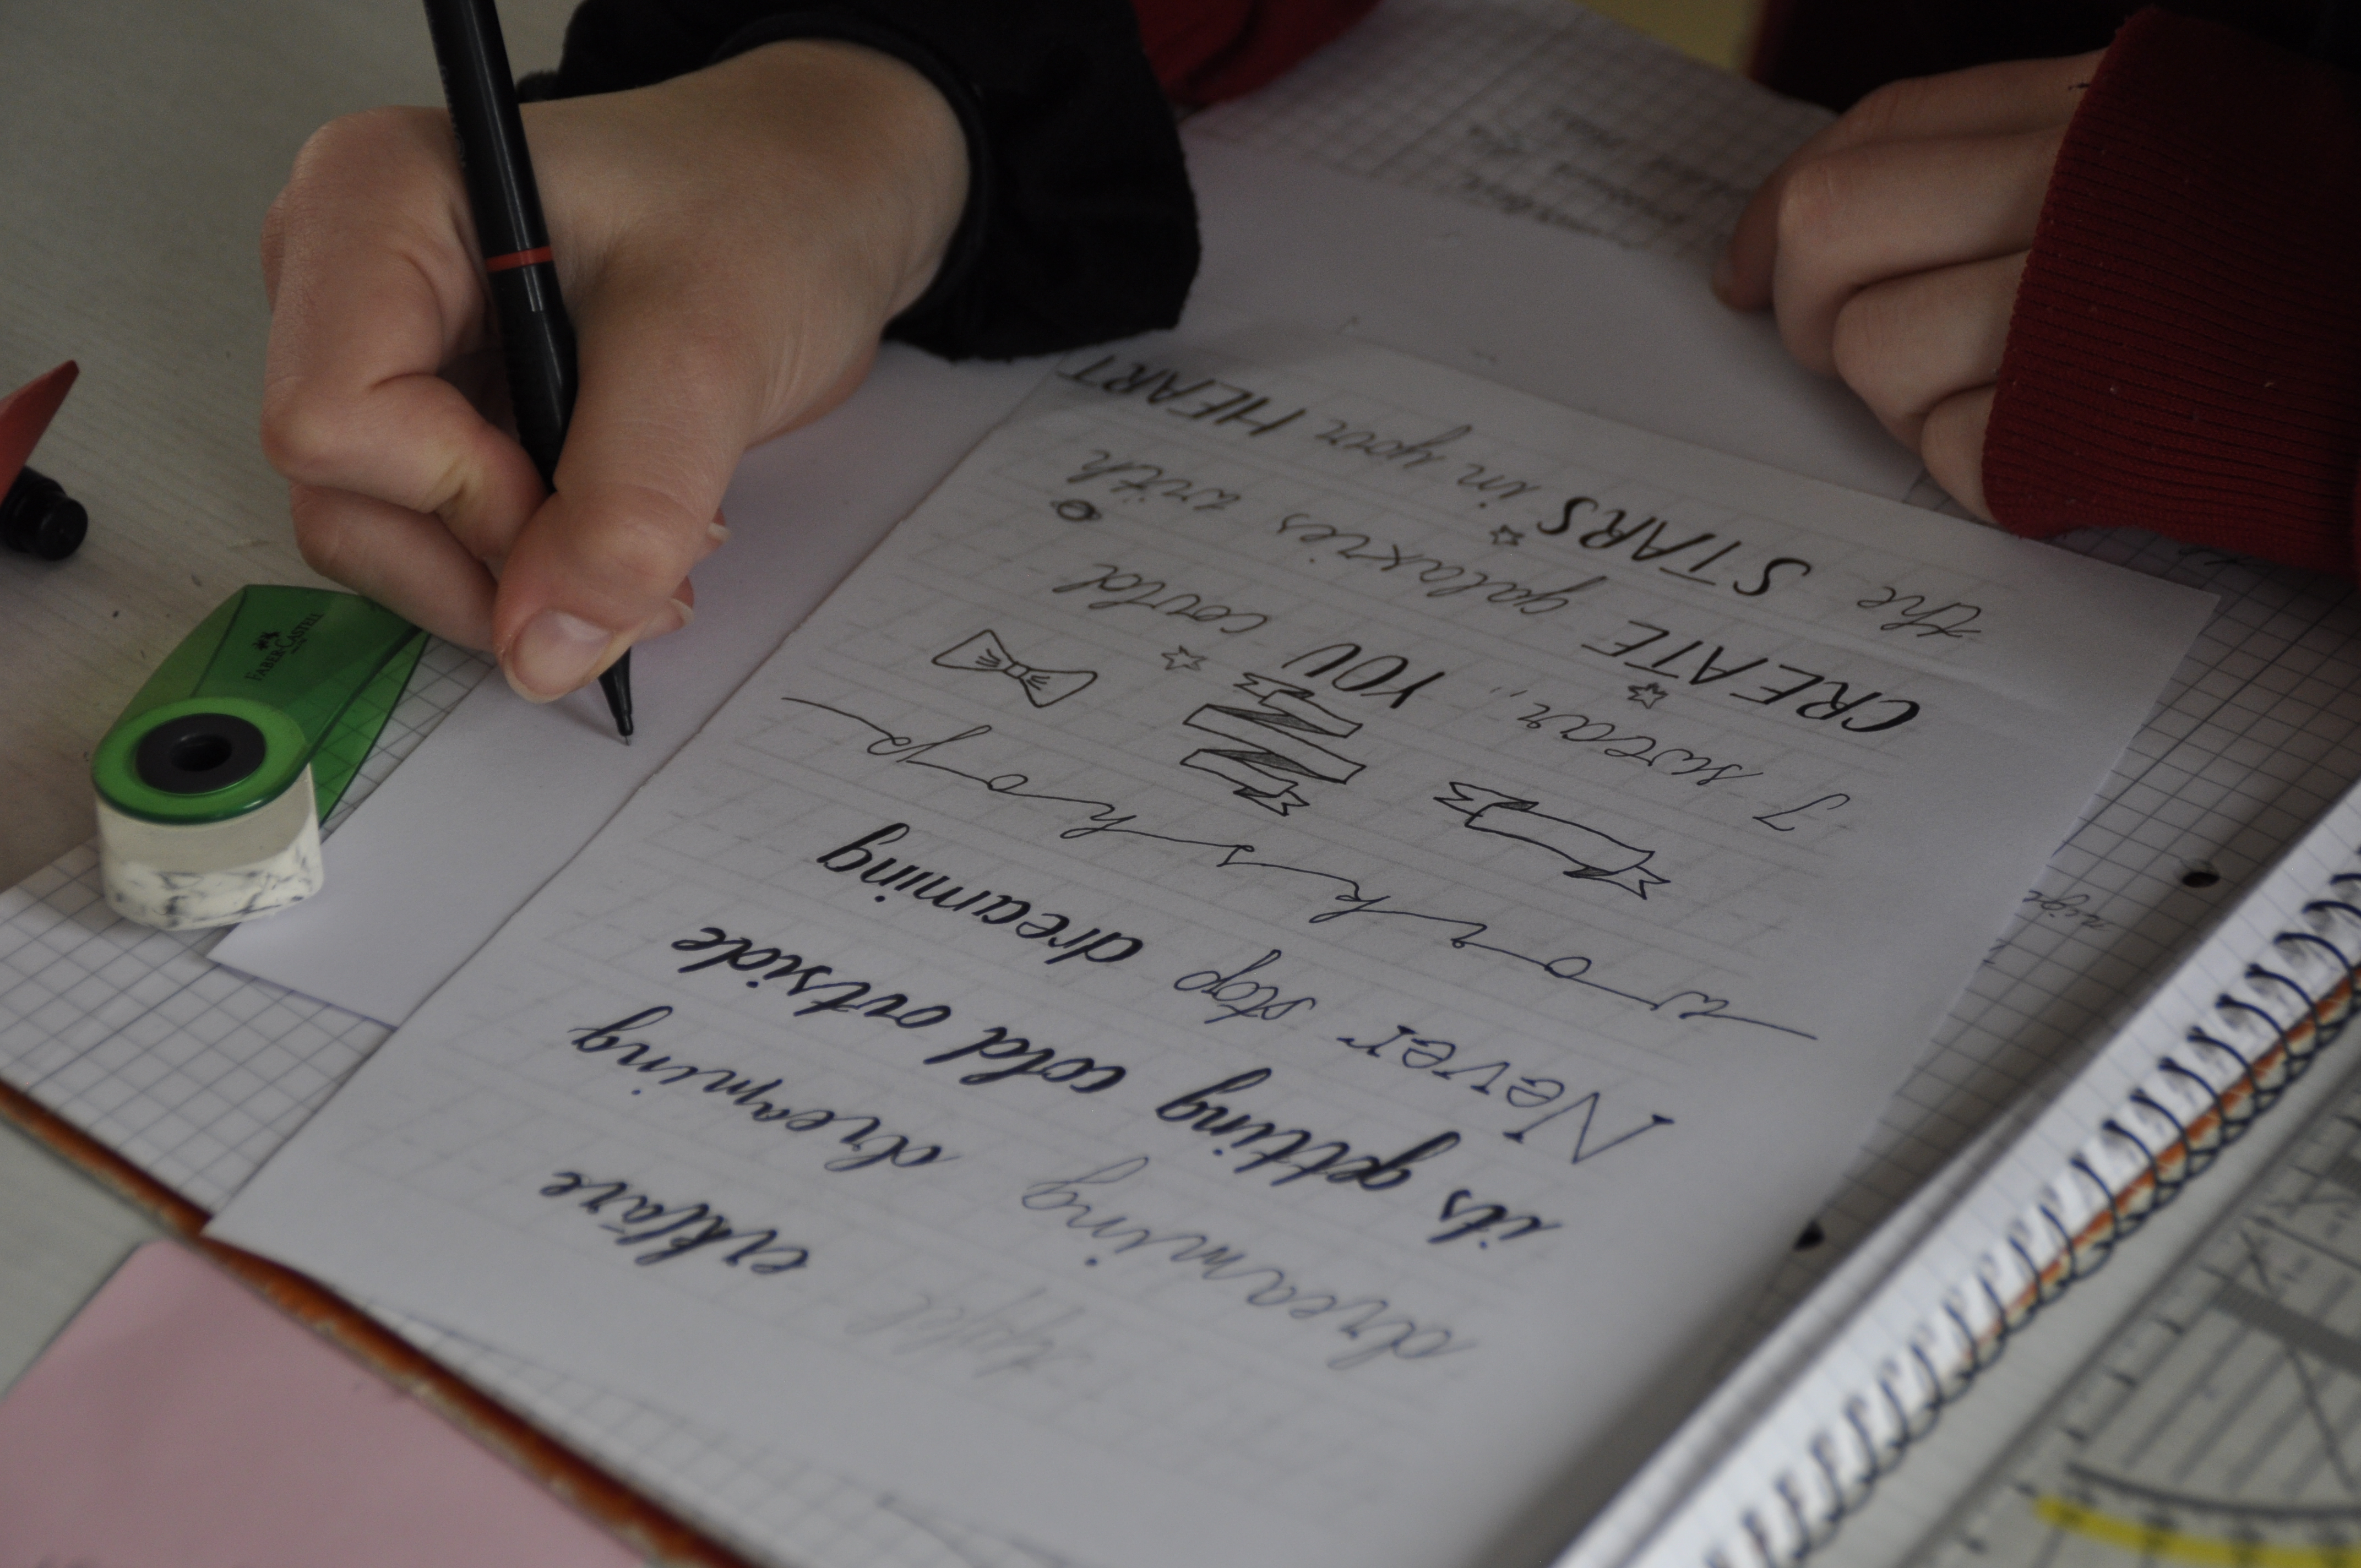 erkläre
dreaming dreaming
its getting cold outside
Never stop dreaming
workshop
I swear, YOU could
CREATE galaxies with
the STARS in your HEART
FABER-CASTELL